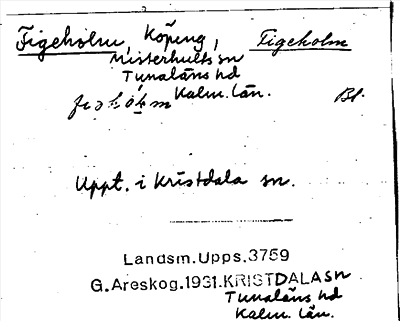 Figeholm, Köping, Figeholm
Misterhults sn
Tunaläns hd
Kalm. län. Bl.
Uppt. i Kristdala sn.
Landsm. Upps. 3759
G. Areskog. 1931. KRISTDALA sn
Tunaläns hd
Kalm. län.